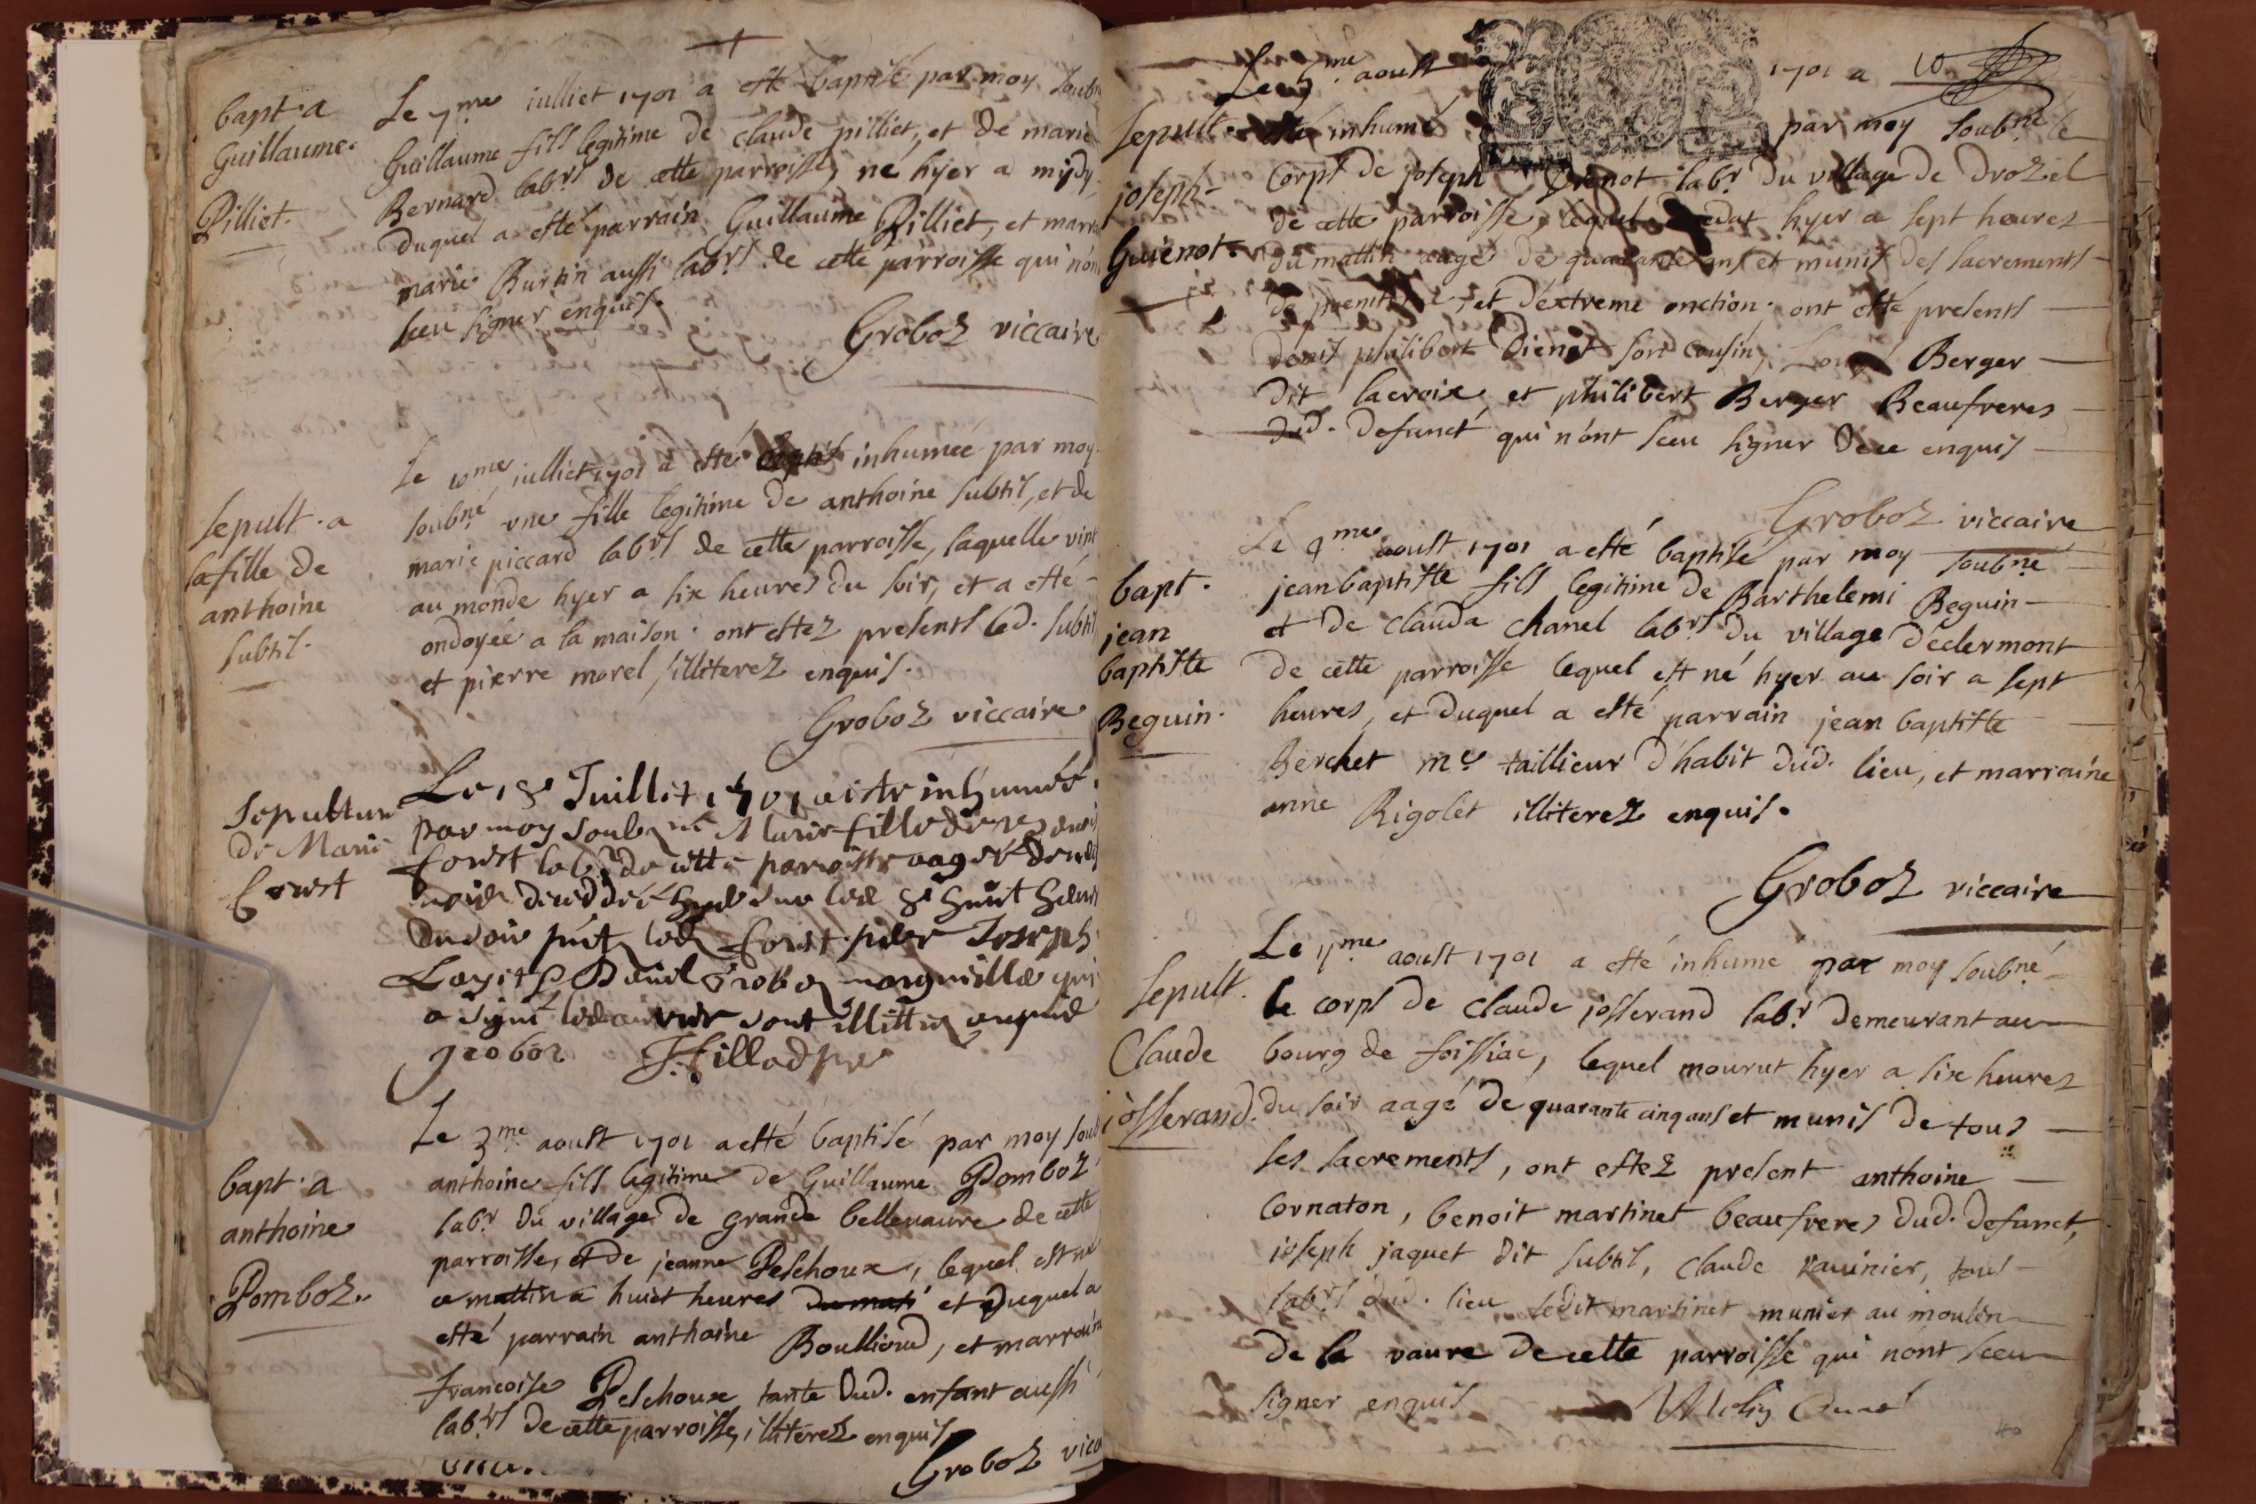 bapt. a
Guillaume
Pilliet.
Le 7me iulliet 1701 a esté baptisé par moy soub
Guillaume fils legitime de claude pilliet, et de marie
Bernard labrs de cette parroisse, né hyer a midy
duquel a esté parrain Guillaume Pilliet, et marr
marie Burtin aussi labrs de cette parroisse qui n'on
sceu signer enquis.
Groboz viccaire
sepult. a
la fille de
anthoine
subtil.
Le 10me iulliet 1701 a esté inhumée par moy
soubné une fille legitime de anthoine subtil, et de
marie piccard labrs de cette parroisse, laquelle vint
au monde hyer a six heures du soir, et a esté
ondoyée a la maison. ont estez presents led. subtil
et pierre morel, illiterez enquis.
Groboz viccaire
Sepulture
de Marie
Corest
Le 18 Juillet 1701 a este inhumée
par moy soubné Marie fille de
Corest labr de cette parroisse aagée de
decedée hyer sur les huit heures
du soir led Corest pere Joseph
marguillé qui
a signé sont illitterez enquis
groboz
bapt. a
anthoine
Pomboz.
Le 3me aoust 1701 a esté baptisé par moy soub
anthoine fils legitime de Guillaume Pomboz
labr du village de grande bellevaure de cette
parroisse, et de jeanne Pelchoux, lequel est né
ce mattin a huict heures du mati et duquel a
esté parrain anthoine Boullioud, et marraine
francoise Pelchoux tante dud. enfant aussi
labrs de cette parroisse, illiterez enquis
Groboz vicc
Le 5me aoust 1701 a
sepult.
joseph
Guienot
esté inhumé par moy soubné le
corps de joseph labr du village de Drozel
de cette parroisse, lequel hyer a sept heures
du mattin aagé de quarante ans et munis des sacrements
de et d'extreme onction. ont esté presents
denis philibert son cousin, Berger
dit lacroix, et philibert Berger Beaufreres
dud. defunct qui n'ont sceu signer de ce enquis
Groboz viccaire
bapt.
jean
baptiste
Beguin.
Le 9me aoust 1701 a esté baptisé par moy soubné
jean baptiste fils legitime de Barthelemi Beguin
et de clauda chanel labrs du village d'eclermont
de cette parroisse lequel est né hyer au soir a sept
heures, et duquel a esté parrain jean baptiste
Berchet me taillieur d'habit dud. lieu, et marraine
anne Rigolet illiterez enquis.
Groboz viccaire
sepult.
Claude
josserand.
Le 11me aoust 1701 a esté inhumé par moy soubné
le corps de claude josserand labr demeurant au
bourg de foissiac, lequel mourut hyer a six heures
du soir aagé de quarante cinq ans et munis de tous
les sacrements, ont estez present anthoine
Cornaton, benoit martinet beaufreres dud. defunct,
joseph jaquet dit subtil, claude tous
labrs dud. lieu ledit martinet munier au moulin
de la vaure de cette parroisse qui n'ont sceu
signer enquis
Curé